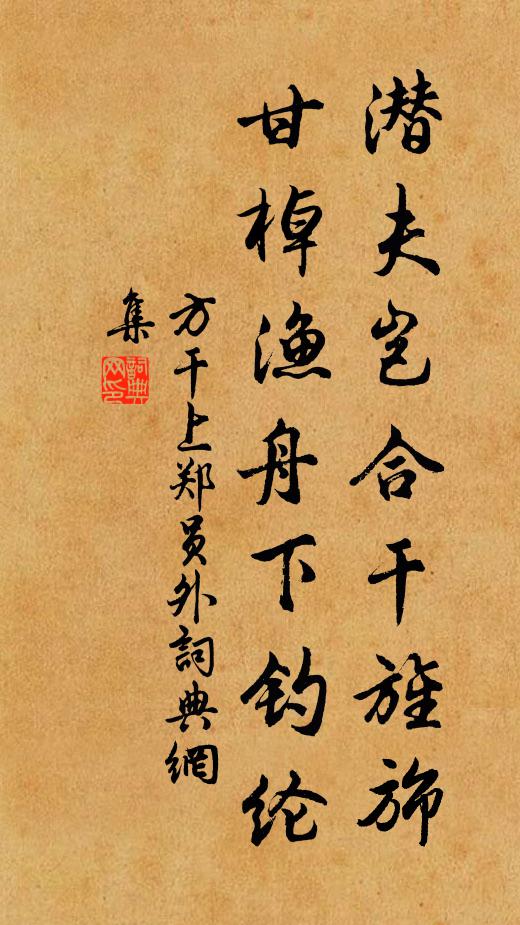 潜夫岂合干旌旆
甘棹渔舟下钓纶
方干上郑员外詞典網
集
詞典网印